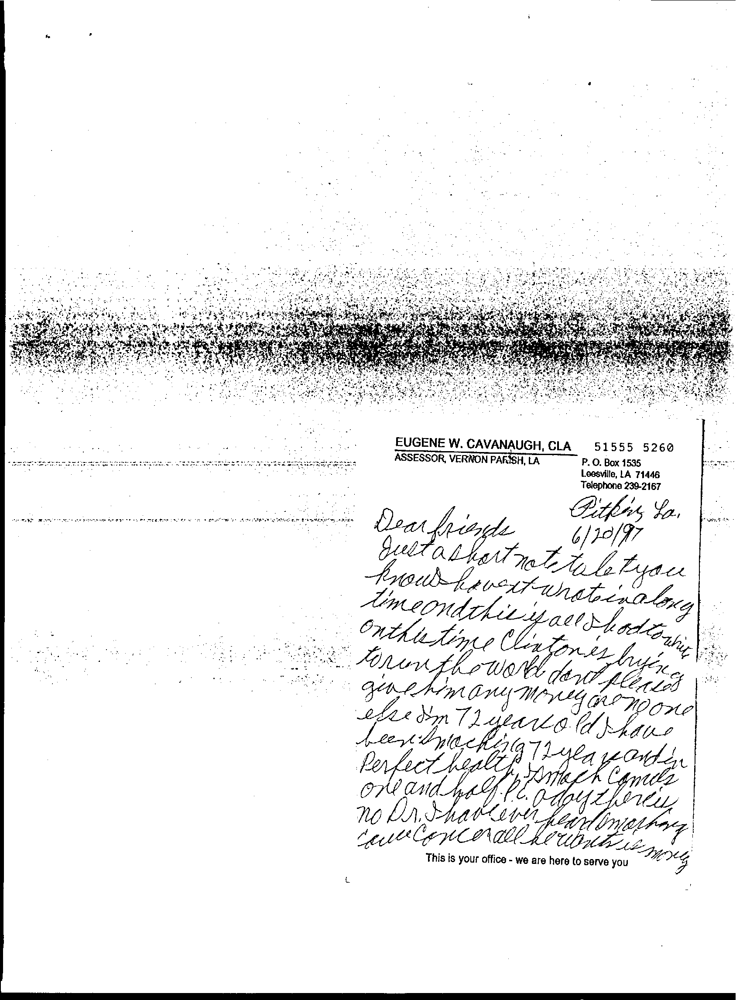 EUGENE W. CAVANAUGH, CLA 51555 5260
ASSESSOR, VERNON PARISH, LA P. O. Box 1535
Leesville, LA 71446
Telephone 239-2167
Pitkin, La.
Dear friends 6/20/97
Just a short note to let you
know I havent wrote in a long
time and this is all I had to write
on this time Clinton is trying
to run the world dont please
give him any money are no one
else I'm 72 years old I have
been smoking 72 years and in
Perfect health I smoke Camels
one and half a day there is
no Dr. I have ever heard smoking
cause Cancer all he wants is money
This is your office - we are here to serve you